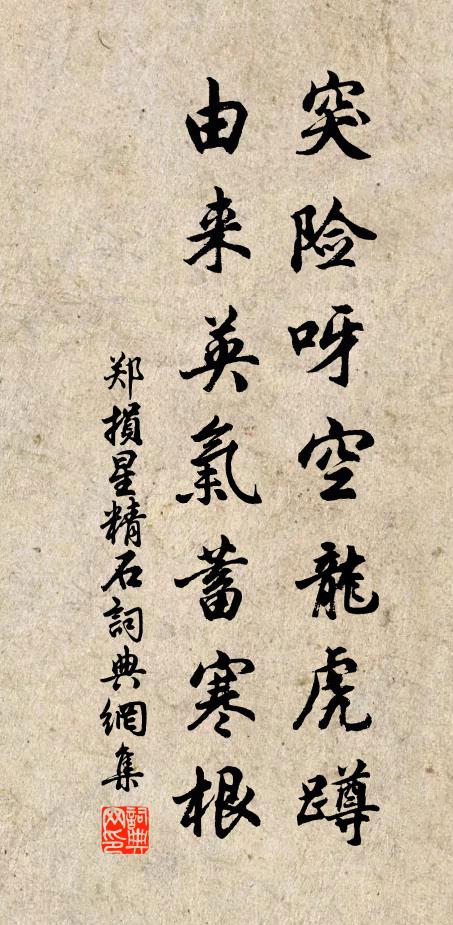 突险呀空龍虎蹲
由来英氣蓄寒根
郑損星精石詞典網集
詞典网印